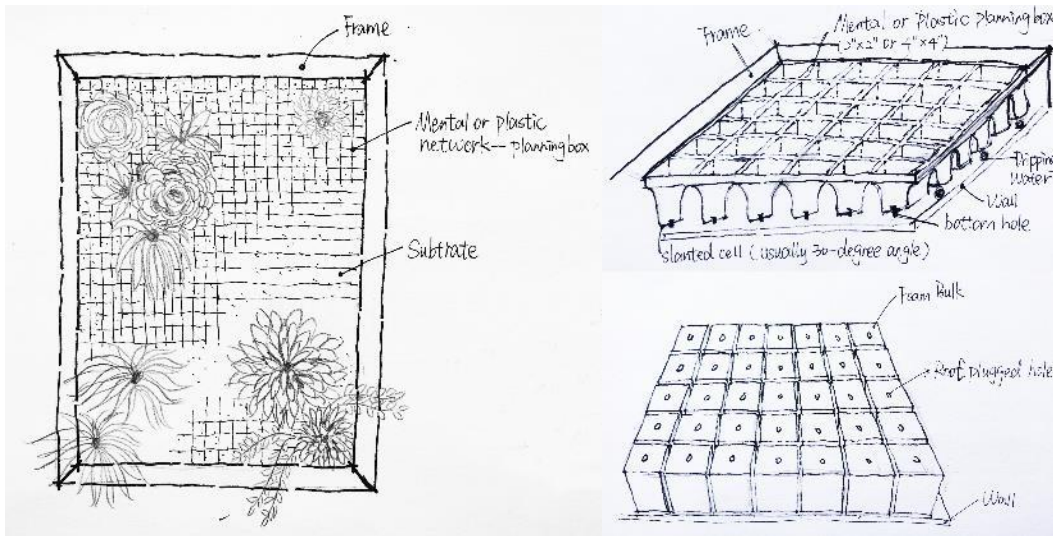 Frame
Mental or plastic
network-- planningbox
Subtrate
Frame
Mental or Plastic planningbox
(2"x2" or 4"x4")
Dripping
Water
Wall
bottom hole
slanted cell (usually 30-degree angle)
Foam Bulk
Root plugged hole
Wall